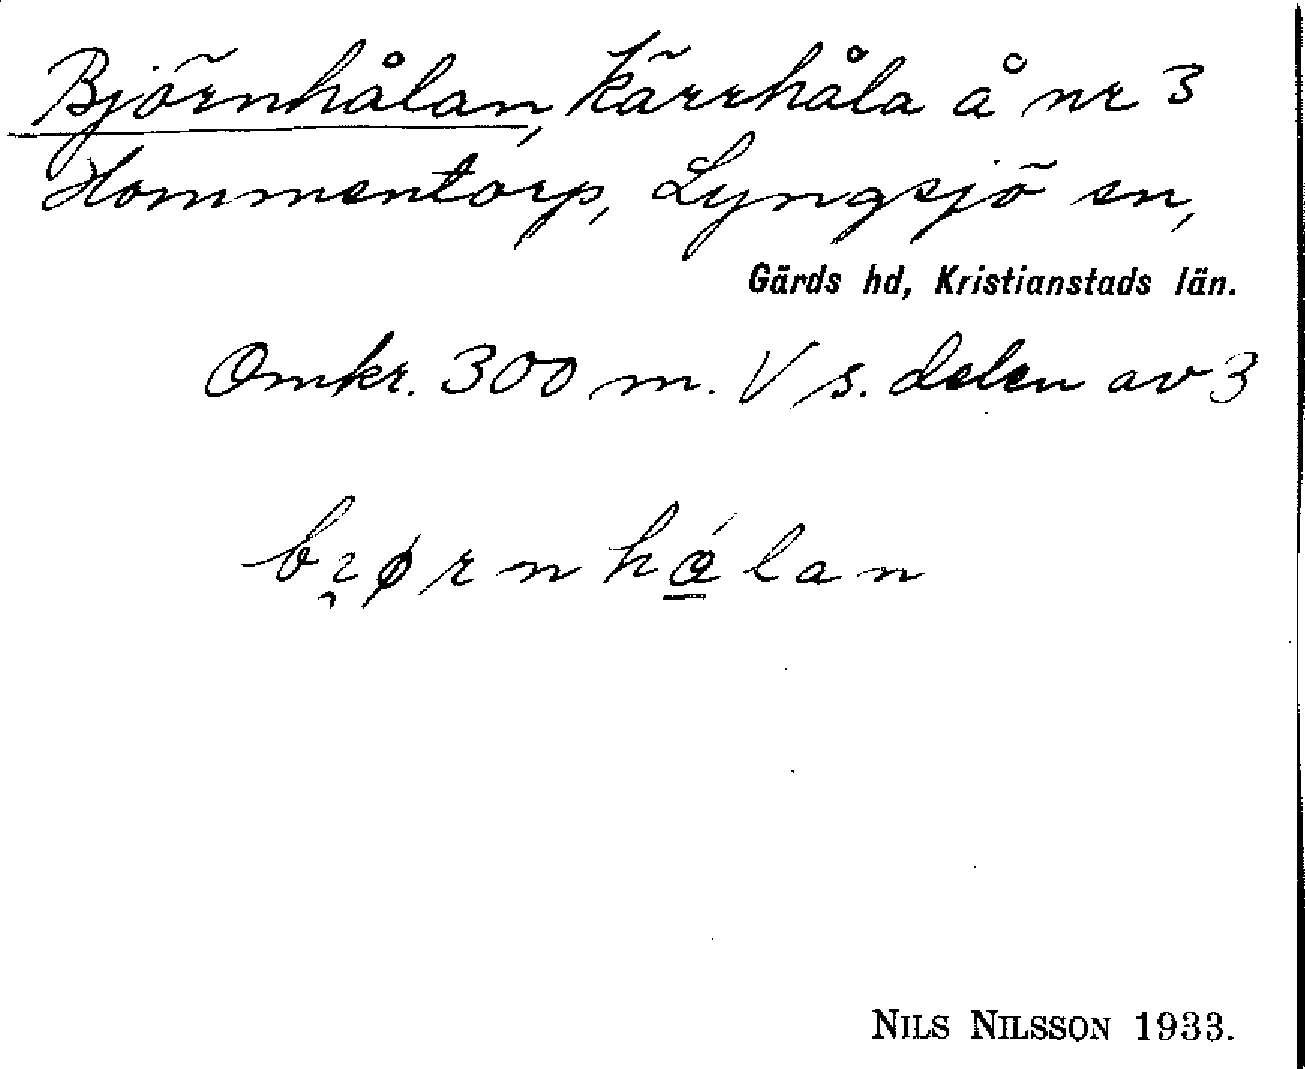 Björnhålan, kärrhåla å nr 3
Hommentorp, Lyngsjö sn,
Gärds hd, Kristianstads län.
Omkr. 300 m. V s. delen av 3
bɿ̯ørnhǫ́lan
NILS NILSSON 1933.